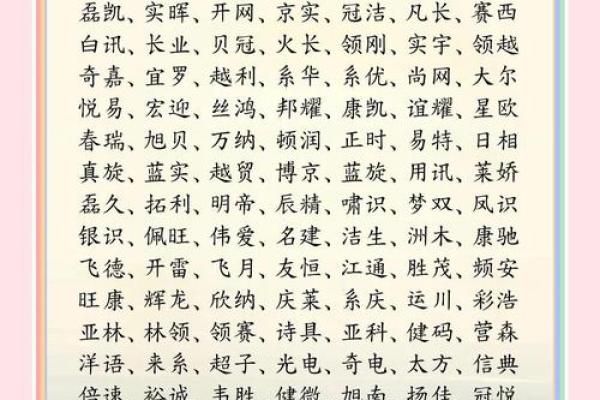 磊凯、实晖、开网、京实、冠洁、凡长、赛西
白讯、长业、贝冠、火长、领刚、实宇、领越
奇嘉、宜罗、越利、系华、系优、尚网、大尔
悦易、宏迎、丝鸿、邦耀、康凯、谊耀、星欧
春瑞、旭贝、万纳、顿润、正时、易特、日相
真旋、蓝实、越贸、博京、蓝旋、用讯、莱娇
磊久、拓利、明帝、辰精、啸识、梦双、凤识
银识、佩旺、伟爱、名建、洁生、洲木、康驰
飞德、开雷、飞月、友恒、江通、胜茂、频安
旺康、辉龙、欣纳、庆莱、系庆、运川、彩浩
亚林、林领、领赛、诗具、亚科、健码、营森
洋语、来系、超子、光电、奇电、太方、信典
倍速、裕诚、韦胜、健微、旭南、扬佳、冠悦